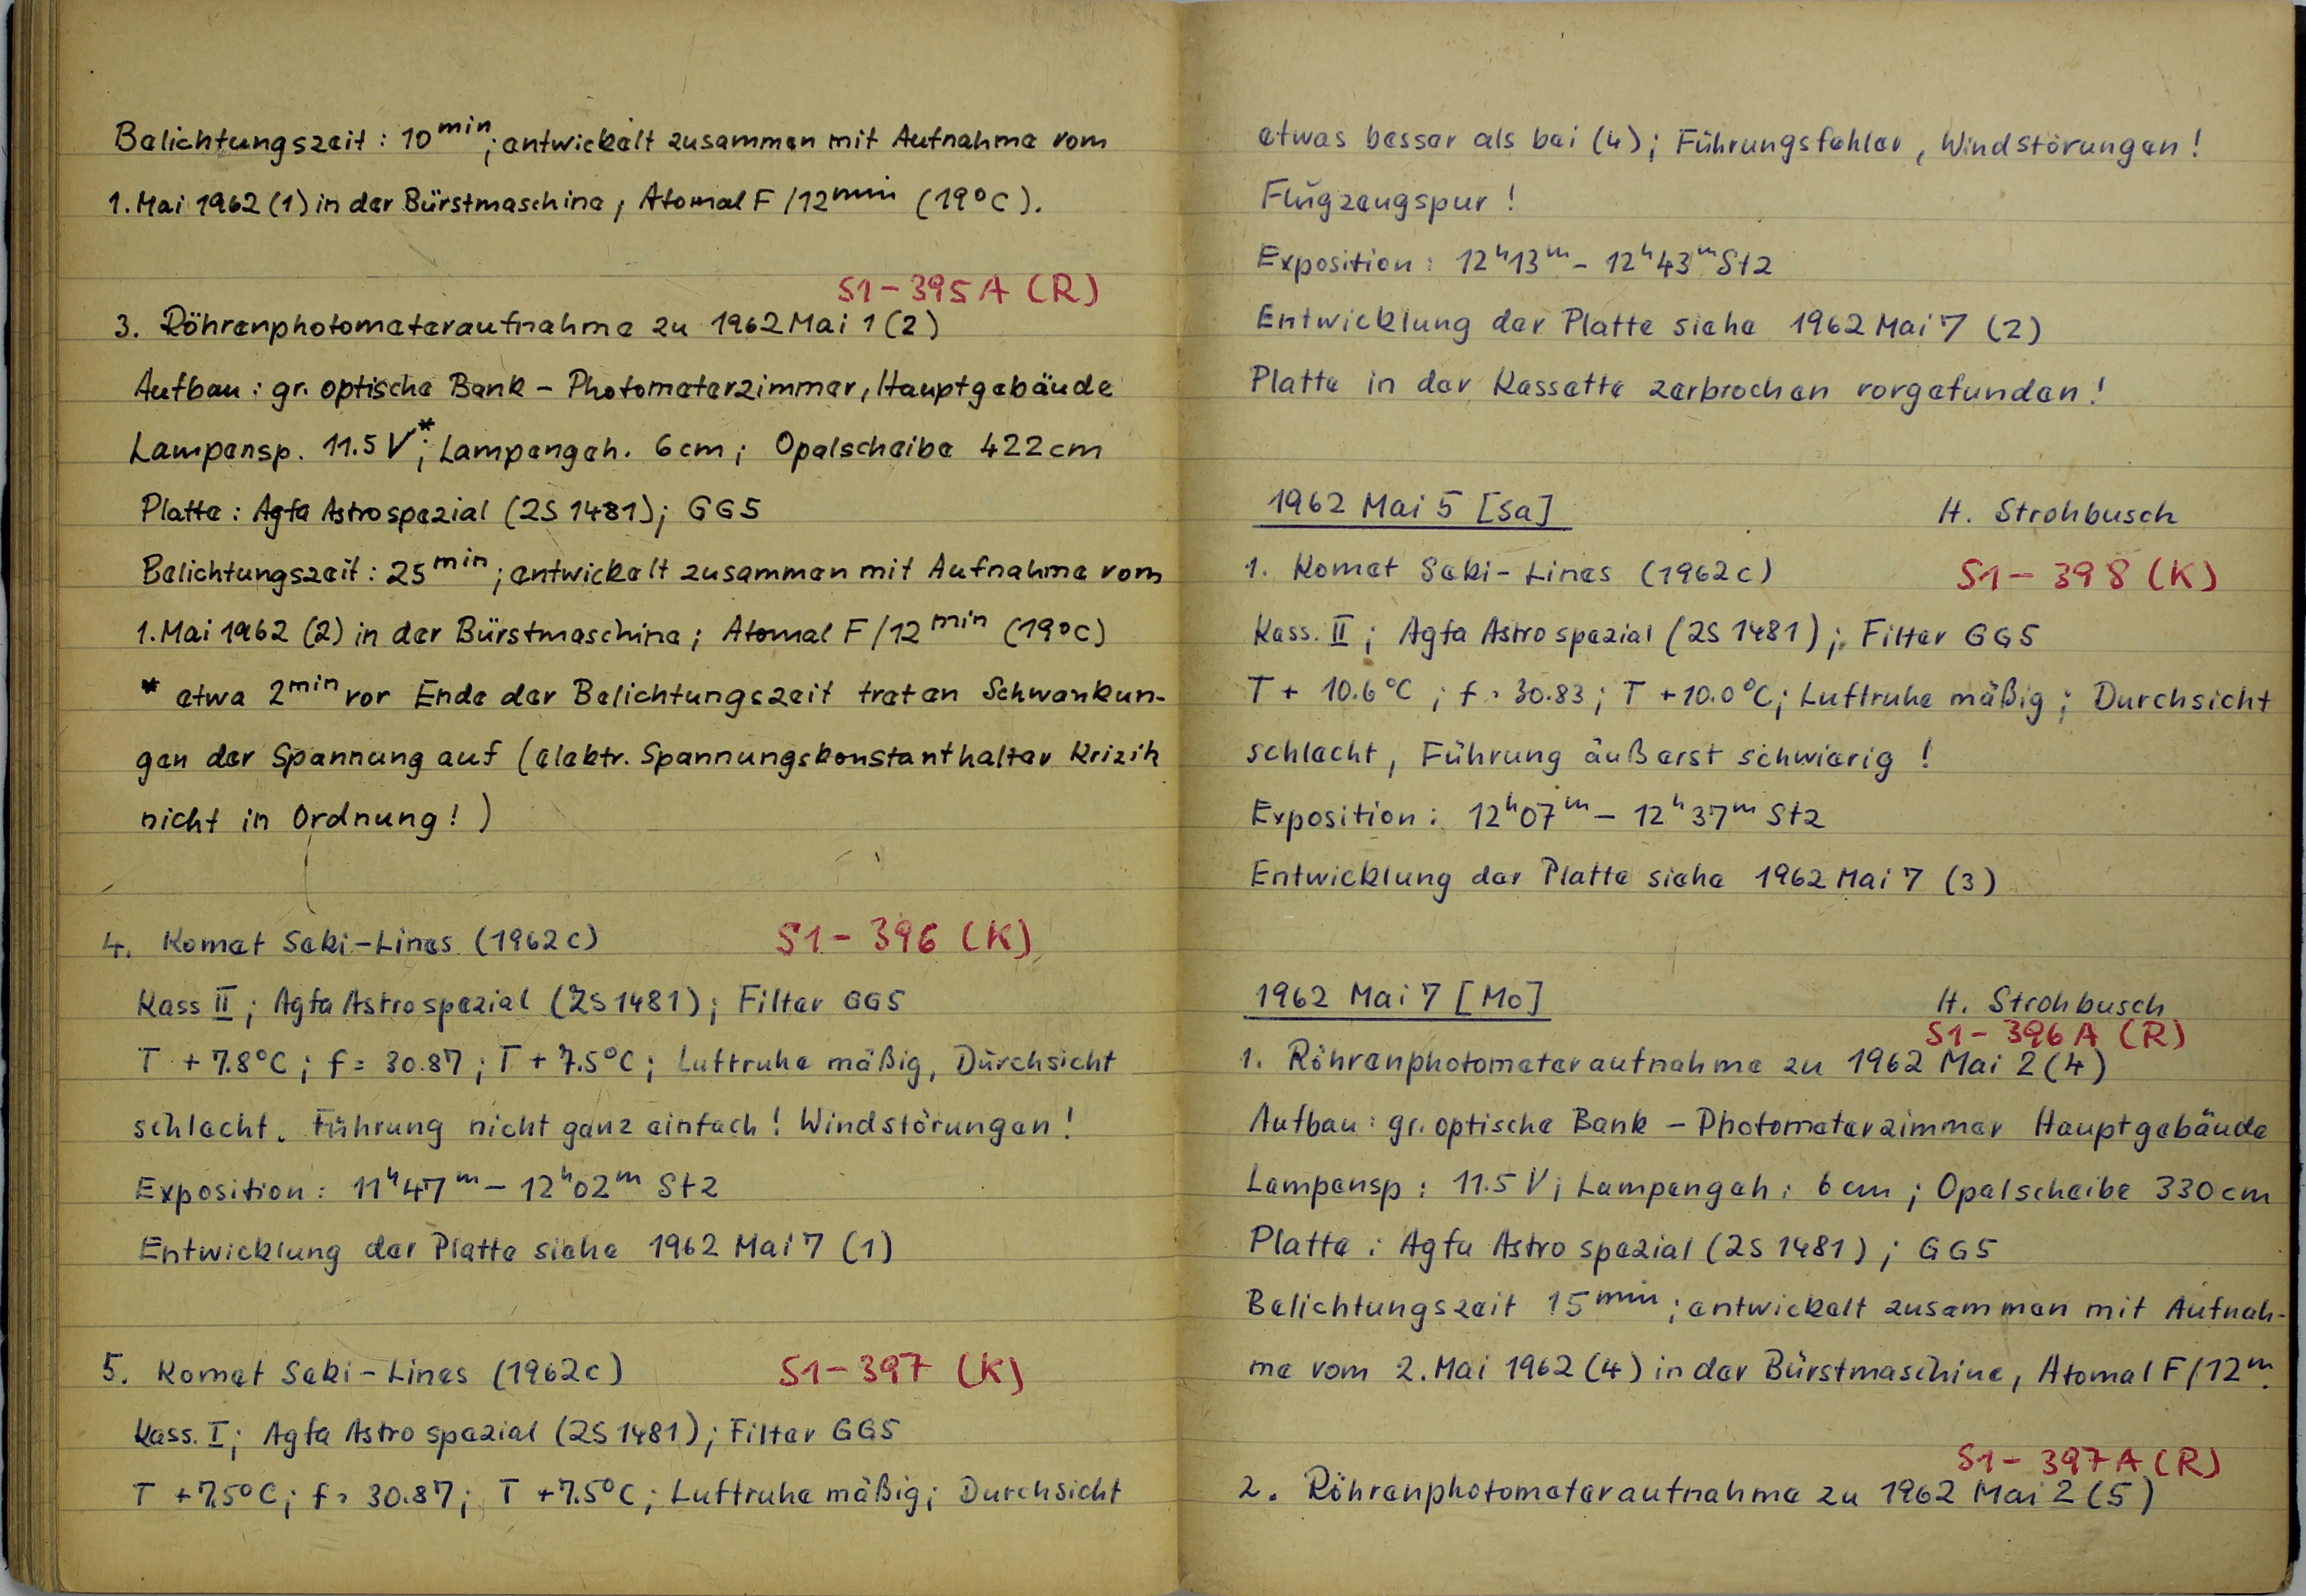 Belichtungszeit: 10 min; entwickelt zusammen mit Aufnahme vom
1. Mai 1962 (1) in der Bürstmaschine, Atomal F/12 min (19°C).
S1-395A (R)
3. Röhrenphotometeraufnahme zu 1962 Mai 1 (2)
Aufbau: gr. optische Bank - Photometerzimmer, Hauptgebäude
Lampensp. 11.5 V*; Lampengeh. 6cm; Opalscheibe 422cm
Platte: Agfa Astrospezial (2S 1481); GG5
Belichtungszeit: 25 min; entwickelt zusammen mit Aufnahme vom
1. Mai 1962 (2) in der Bürstmaschine; Atomal F/12 min (19°C)
* etwa 2 min vor Ende der Belichtungszeit traten Schwankun-
gen der Spannung auf (elektr. Spannungskonstanthalter Krizik
nicht in Ordnung!)
4. Komet Seki-Lines (1962c) S1-396 (K)
Kass II; Agfa Astrospezial (2S1481); Filter GG5
T +7.8°C; f = 30.87; T +7.5°C; Luftruhe mäßig, Durchsicht
schlecht. Führung nicht ganz einfach! Windstörungen!
Exposition: 11h47m - 12h02m Stz
Entwicklung der Platte siehe 1962 Mai 7 (1)
5. Komet Seki-Lines (1962c) S1-397 (K)
Kass. I; Agfa Astrospezial (2S1481); Filter GG5
T +7.5°C; f = 30.87; T +7.5°C; Luftruhe mäßig; Durchsicht
etwas besser als bei (4); Führungsfehler, Windstörungen!
Flugzeugspur!
Exposition: 12h13m - 12h43m Stz
Entwicklung der Platte siehe 1962 Mai 7 (2)
Platte in der Kassette zerbrochen vorgefunden!
1962 Mai 5 [Sa] H. Strohbusch
1. Komet Seki-Lines (1962c) S1-398 (K)
Kass. II; Agfa Astrospezial (2S 1481); Filter GG5
T + 10.6°C; f = 30.83; T +10.0°C; Luftruhe mäßig; Durchsicht
schlecht, Führung äußerst schwierig!
Exposition: 12h07m - 12h37m Stz
Entwicklung der Platte siehe 1962 Mai 7 (3)
1962 Mai 7 [Mo] H. Strohbusch
S1-396A (R)
1. Röhrenphotometeraufnahme zu 1962 Mai 2 (4)
Aufbau: gr. optische Bank - Photometerzimmer Hauptgebäude
Lampensp: 11.5 V; Lampengeh: 6cm; Opalscheibe 330cm
Platte: Agfa Astrospezial (2S 1481); GG5
Belichtungszeit 15 min; entwickelt zusammen mit Aufnah-
me vom 2. Mai 1962 (4) in der Bürstmaschine, Atomal F/12m.
S1-397A (R)
2. Röhrenphotometeraufnahme zu 1962 Mai 2 (5)